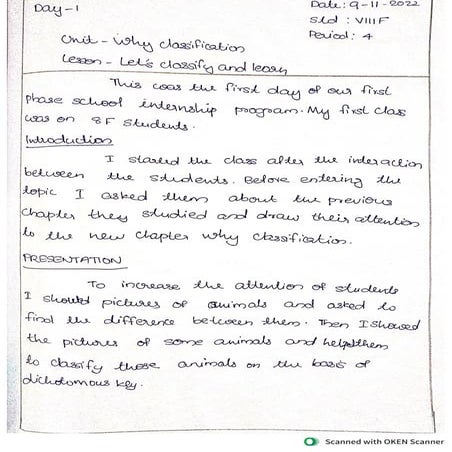 Day-1
Date: 9-11-2022
Std : VIII F
Period: 4
Unit - Why classification
Lesson - Let's classify and learn
This was the first day of our first
phase school internship program. My first class
was on 8F students.
Introduction
I started the class after the interaction
between the students. Before entering the
topic I asked them about the previous
chapter they studied and draw their attention
to the new chapter why classification.
PRESENTATION
To increase the attention of students
I should pictures of animals and asked to
find the difference between them. Then I showed
the pictures of some animals and help them
to classify those animals on the basis of
dichotomous key.
Scanned with OKEN Scanner